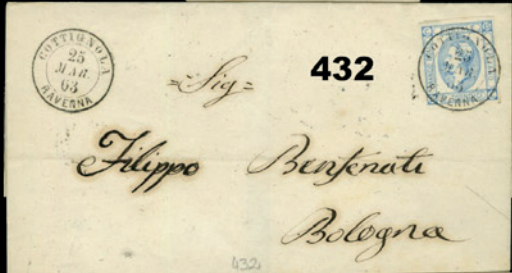 COTTIGNOLA
25
MAR.
63
RAVENNA
COTTIGNOLA
25
MAR.
63
RAVENNA
432
Sig
Filippo Bensenati
Bologna
432